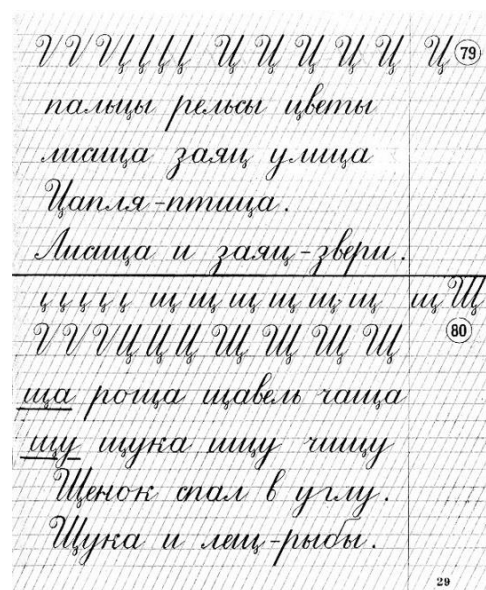 Ц Ц Ц Ц Ц Ц 79
пальцы рельсы цветы
лисица заяц улица
Цапля-птица.
Лисица и заяц-звери.
щ щ щ щ щ щ щ Щ
Ц Ц Ц Щ Щ Щ Щ 80
ща роща щавель чаща
щу щука ищу чищу
Щенок спал в углу.
Щука и лещ-рыбы.
29